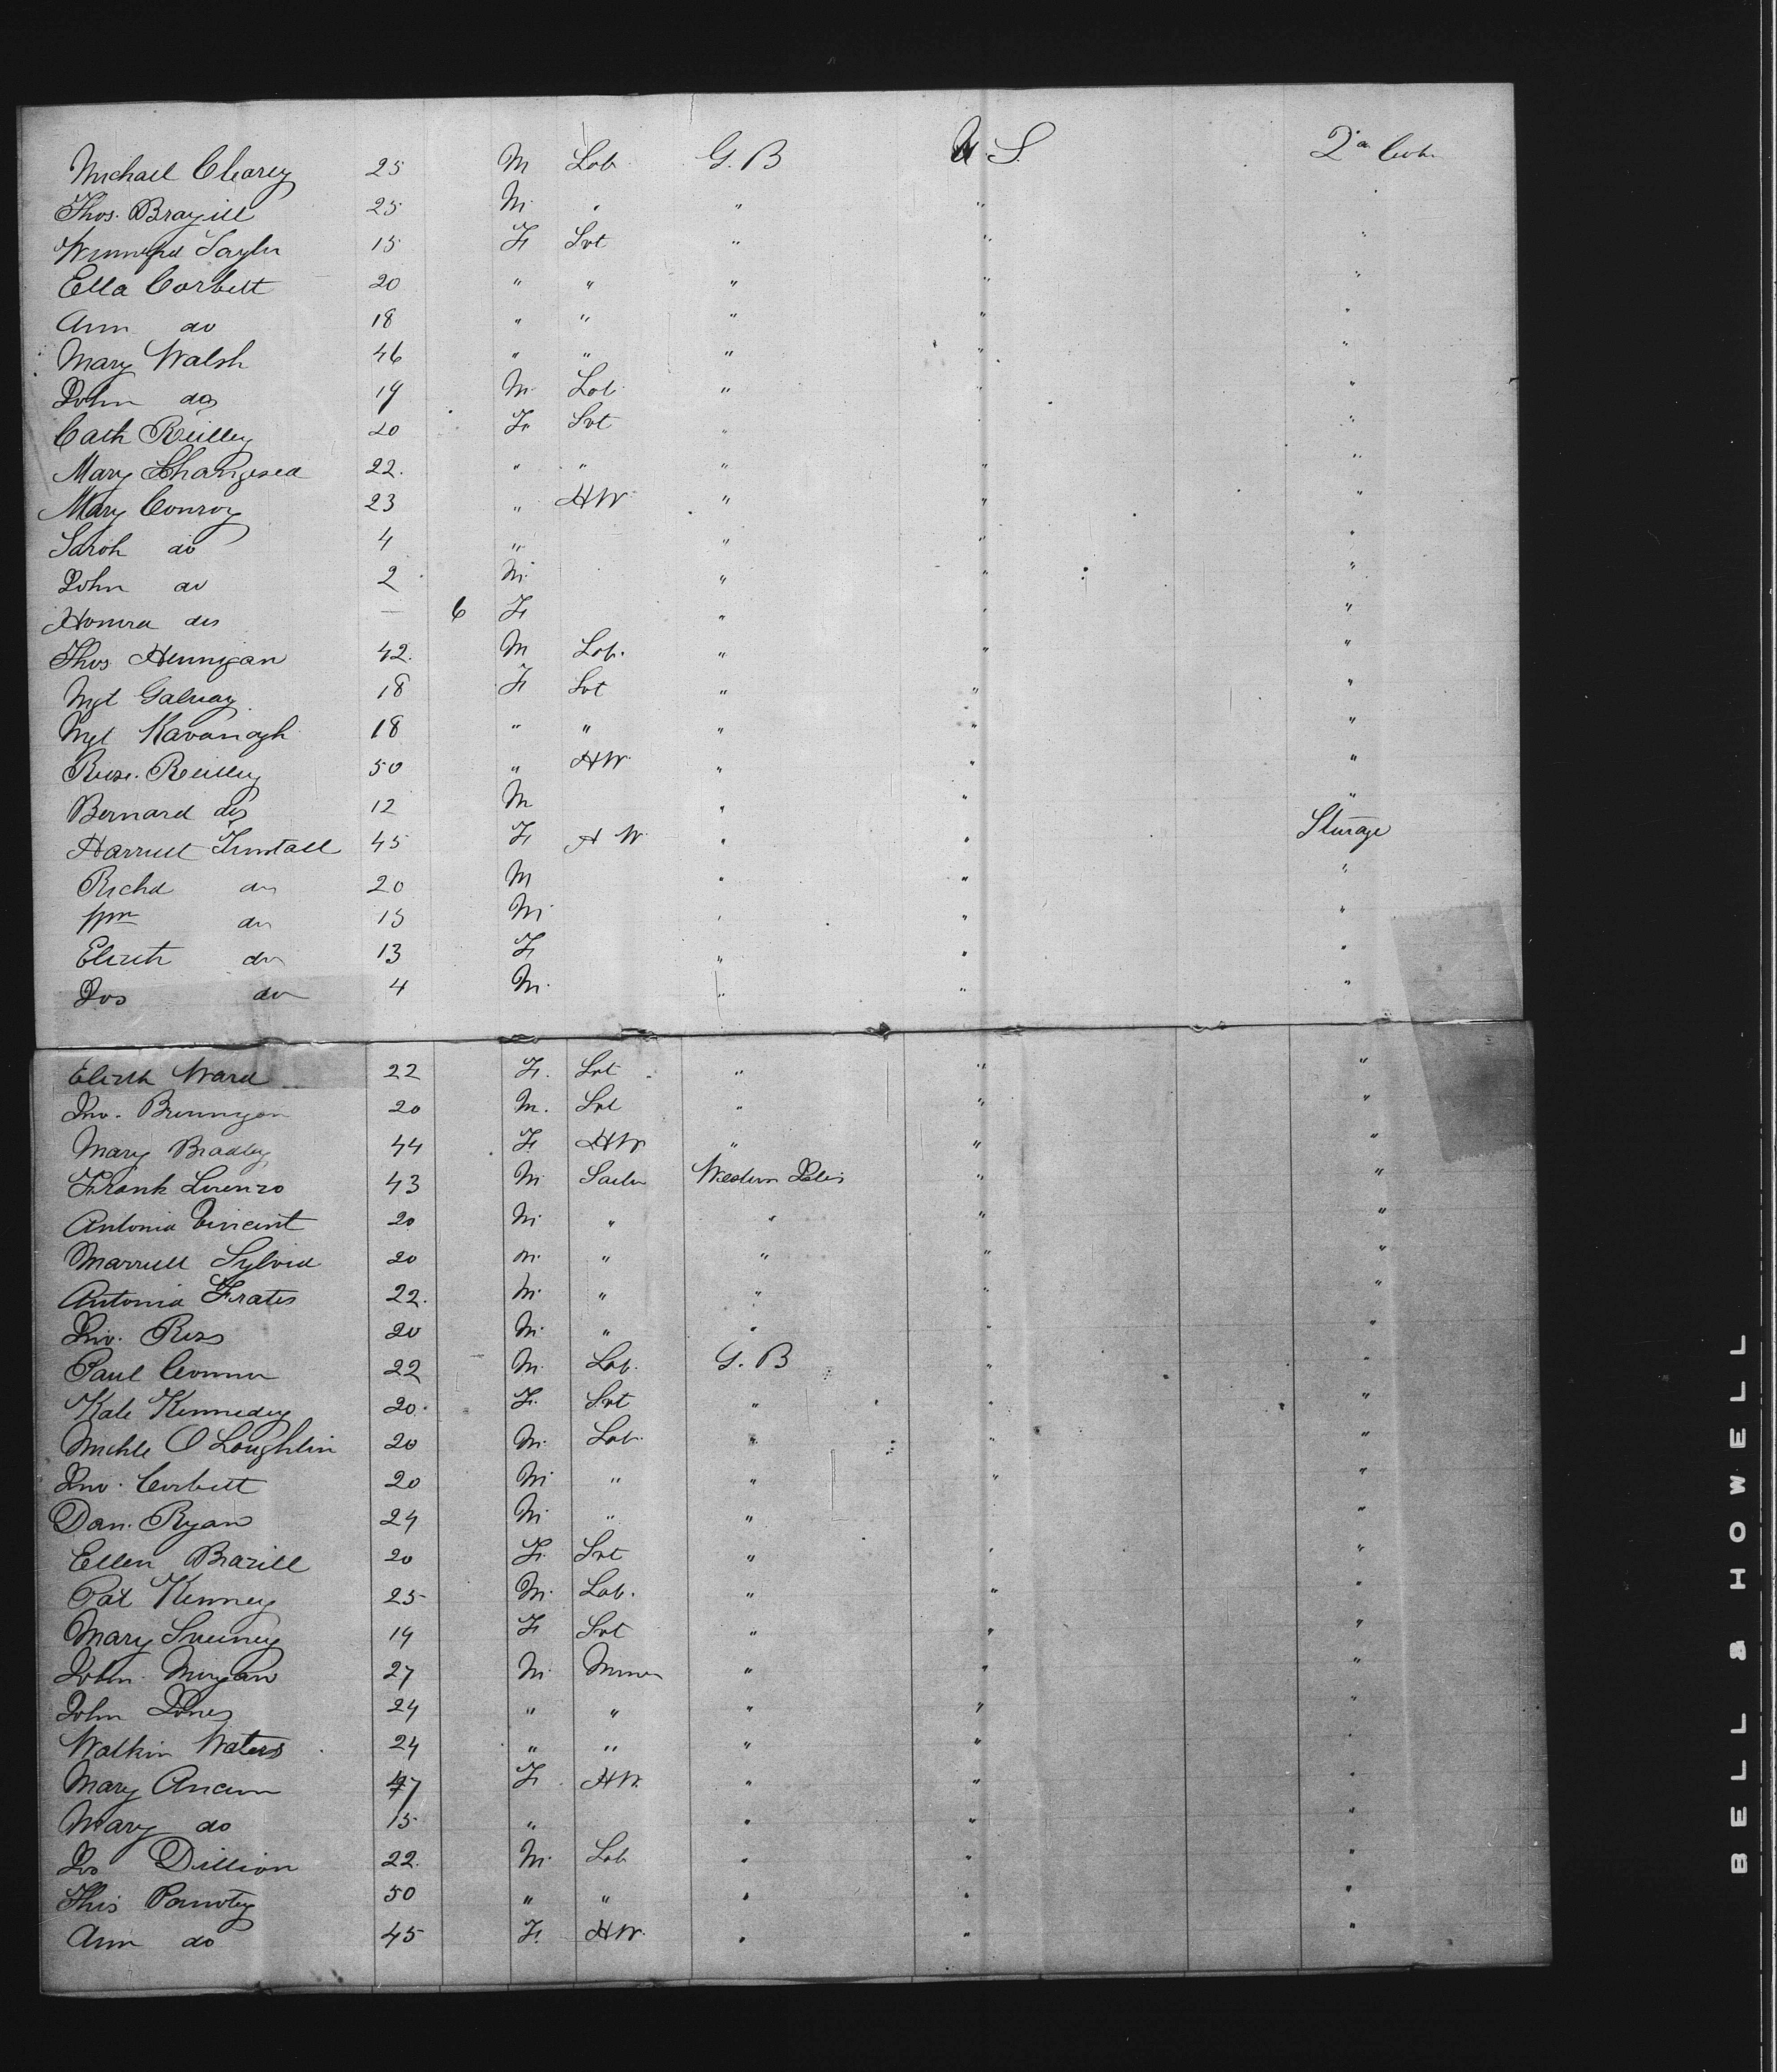 Michael Cleary 25 M Lab. G. B U. S. 2nd Cab.
Thos. Brazill 25 M. " " " "
Winnifred Taylor 15 F Svt " " "
Ella Corbett 20 " " " " "
Ann do 18 " " " " "
Mary Walsh 46 " " " " "
John do 19 M Lab. " " "
Cath Reilley 20 F Svt " " "
Mary 22. " " " " "
Mary Conroy 23 " HW " " "
Sarah do 4 " " " "
John do 2 M. " " "
Honora do — 6 F " " "
Thos Hennigan 42. M Lab. " " "
Mgt Galvay 18 F Svt " " "
Mgt Kavanagh 18 " " " " "
Rose. Reilley 50 " HW " " "
Bernard do 12 M " " "
Harriett Tunstall 45 F H W. " " Sterage
Richd do 20 M " " "
Wm do 15 M " " "
Elizth do 13 F " " "
Jos do 4 M. " " "
Elizth Ward 22 F. Svt " " "
Jno. Brennigan 20 M. Svt " " "
Mary Bradley 44 F. HW " " "
Frank Lorenzo 43 M Sailor Western Isles " "
Antonia Vincent 20 M " " " "
Marriell Sylvia 20 M. " " " "
Antonia Frates 22. M. " " " "
Jno. Ross 20 M. " " " "
Paul Connor 22 M. Lab. G. B " "
Kate Kennedy 20 F. Svt " " "
Michl O Loughlin 20 M. Lab. " " "
Jno. Corbett 20 M " " " "
Dan. Ryan 24 M. " " " "
Ellen Brazill 20 F. Svt " " "
Pat Kenney 25 M. Lab. " " "
Mary Sweeney 19 F Svt " " "
John Morgan 27 M. Miner " " "
John Jones 24 " " " " "
Watkin Waters 24 " " " " "
Mary 47 F HW. " " "
Mary do 15 " " " "
Jos Dillion 22. M. Lab " " "
Thos 50 " " " " "
Ann do 45 F. HW. " " "
BELL & HOWELL